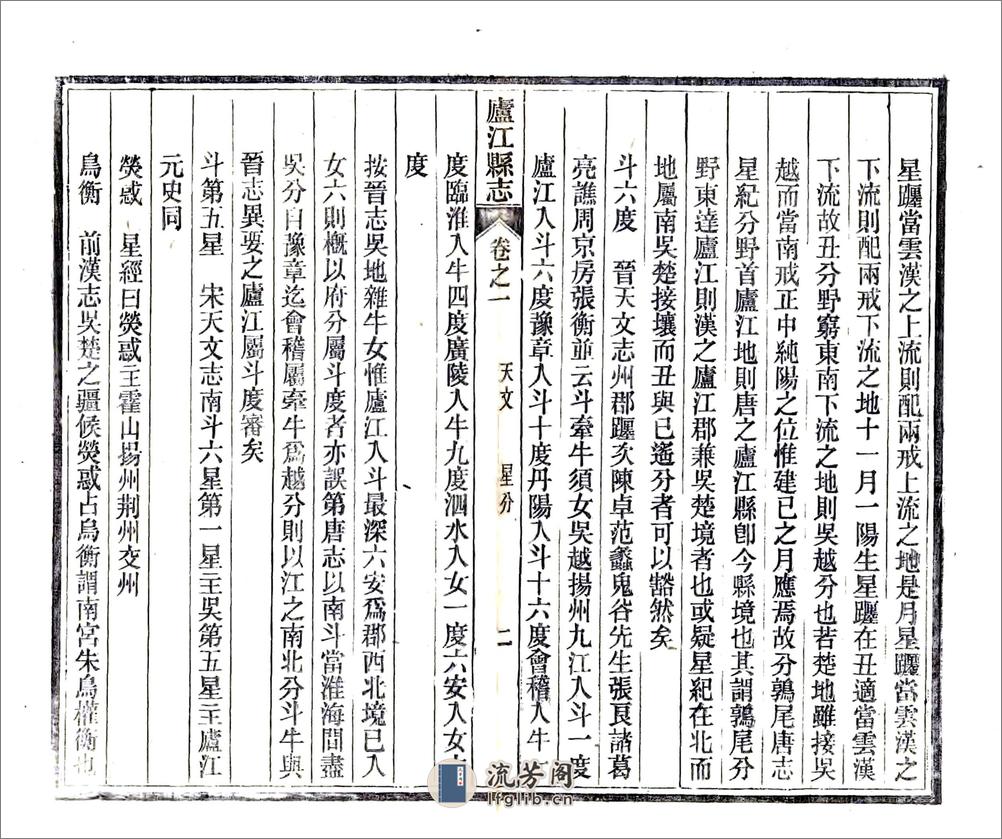 星躔當雲漢之上流則配兩戒上流之地是月星躔當雲漢之
下流則配兩戒下流之地十一月一陽生星躔在丑適當雲漢
下流故丑分野窮東南下流之地則吳越分也若楚地雖接吳
越而當南戒正中純陽之位惟建巳之月應焉故分鶉尾唐志
星紀分野首廬江地則唐之廬江縣卽今縣境也其謂鶉尾分
野東達廬江則漢之廬江郡兼吳楚境者也或疑星紀在北而
地屬南吳楚接壤而丑與巳遙分者可以豁然矣
斗六度　晉天文志州郡躔次陳卓范蠡鬼谷先生張良諸葛
亮譙周京房張衡並云斗牽牛須女吳越揚州九江入斗一度
廬江入斗六度豫章入斗十度丹陽入斗十六度會稽入牛
廬江縣志
卷之一
天文
星分
二
度臨淮入牛四度廣陵入牛九度泗水入女一度六安入女六
度
按晉志吳地雜牛女惟廬江入斗最深六安爲郡西北境已入
女六則概以府分屬斗度者亦誤第唐志以南斗當淮海間盡
吳分自豫章迄會稽屬牽牛爲越分則以江之南北分斗牛與
晉志異要之廬江屬斗度審矣
斗第五星　宋天文志南斗六星第一星主吳第五星主廬江
元史同
熒惑　星經曰熒惑主霍山揚州荆州交州
鳥衡　前漢志吳楚之疆候熒惑占鳥衡謂南宮朱鳥權衡也
流芳阁
lfglib.cn